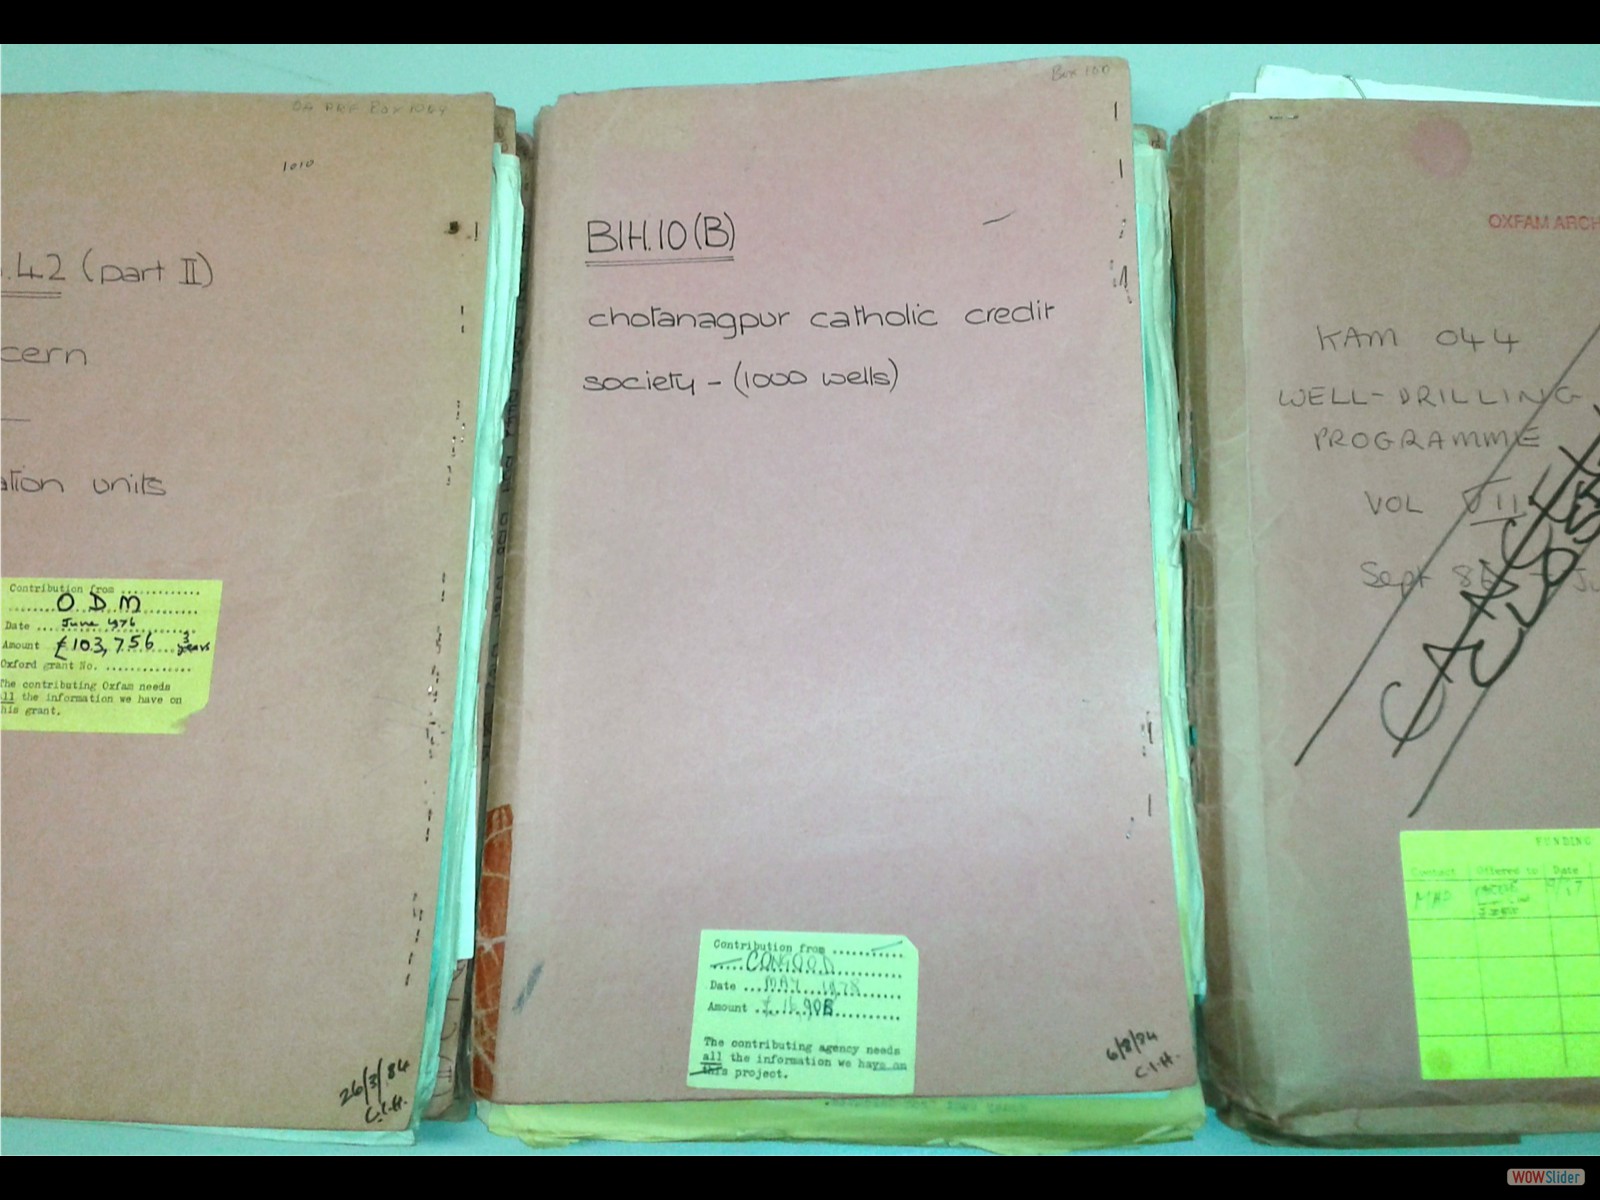 OA PRF Box 1064
1010
.42 (part II)
cern
ation units
Contribution from
O D M
Date June 1976
Amount £103,756 3 years
Oxford grant No.
The contributing Oxfam needs
all the information we have on
this grant.
26/3/84
C.I.H.
Box 100
BIH.10(B)
chotanagpur catholic credit
society - (1000 wells)
Contribution from
Date MAY 1978
Amount £ 16,908
The contributing agency needs
all the information we have on
this project.
6/8/84
C.I.H.
OXFAM ARCH
KAM 044
WELL-DRILLING
PROGRAMME
VOL VII
Sept 86
CASE
CLOSED
FUNDING
Contact Offered to Date
WOWSlider